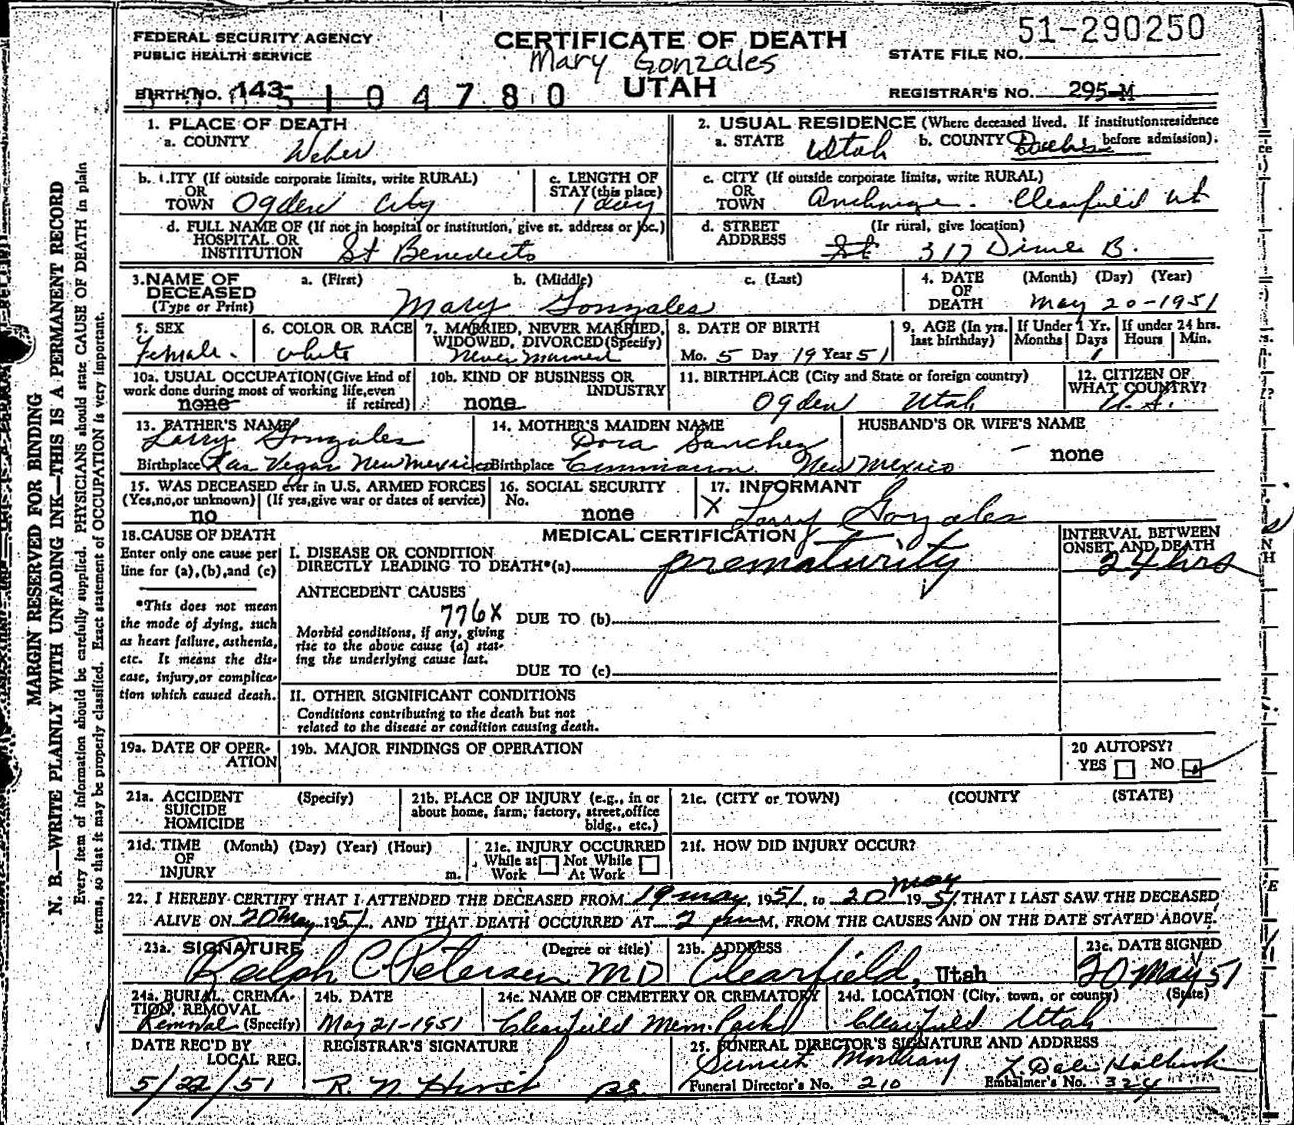 FEDERAL SECURITY AGENCY
PUBLIC HEALTH SERVICE
CERTIFICATE OF DEATH
Mary Gonzales
UTAH
51-290250
STATE FILE NO.
BIRTH NO. 143 5 1 0 4 7 8 0
REGISTRAR'S NO. 295-M
1. PLACE OF DEATH
a. COUNTY Weber
2. USUAL RESIDENCE (Where deceased lived. If institution:residence before admission).
a. STATE Utah b. COUNTY Davis
b. CITY (If outside corporate limits, write RURAL)
OR
TOWN Ogden City
c. LENGTH OF
STAY (this place)
1 day
c. CITY (If outside corporate limits, write RURAL)
OR
TOWN Anchorage. Clearfield Ut
d. FULL NAME OF (If not in hospital or institution, give st. address or loc.)
HOSPITAL OR
INSTITUTION St Benedicts
d. STREET (If rural, give location)
ADDRESS St 317 B.
3. NAME OF DECEASED
(Type or Print)
a. (First) b. (Middle) c. (Last)
Mary Gonzales
4. DATE OF DEATH
(Month) (Day) (Year)
May 20-1951
5. SEX
Female.
6. COLOR OR RACE
white
7. MARRIED, NEVER MARRIED,
WIDOWED, DIVORCED (Specify)
Never Married
8. DATE OF BIRTH
Mo. 5 Day 19 Year 51
9. AGE (In yrs. last birthday)
If Under 1 Yr. Months Days
1
If under 24 hrs. Hours Min.
10a. USUAL OCCUPATION (Give kind of
work done during most of working life, even
if retired)
none
10b. KIND OF BUSINESS OR
INDUSTRY
none
11. BIRTHPLACE (City and State or foreign country)
Ogden Utah
12. CITIZEN OF
WHAT COUNTRY?
U.S.
13. FATHER'S NAME
Larry Gonzales
Birthplace Las Vegas New Mexico
14. MOTHER'S MAIDEN NAME
Dora Sanchez
Birthplace Cimmaron New Mexico
HUSBAND'S OR WIFE'S NAME
- none
15. WAS DECEASED ever in U.S. ARMED FORCES
(Yes, no, or unknown) (If yes, give war or dates of service)
no
16. SOCIAL SECURITY
No.
none
17. INFORMANT
X Larry Gonzales
18. CAUSE OF DEATH
Enter only one cause per
line for (a), (b), and (c)
*This does not mean
the mode of dying, such
as heart failure, asthenia,
etc. It means the dis-
ease, injury, or complica-
tion which caused death.
MEDICAL CERTIFICATION
I. DISEASE OR CONDITION
DIRECTLY LEADING TO DEATH*(a) prematurity
INTERVAL BETWEEN
ONSET AND DEATH
24 hrs
ANTECEDENT CAUSES
776X DUE TO (b)
Morbid conditions, if any, giving
rise to the above cause (a) stat-
ing the underlying cause last.
DUE TO (c)
II. OTHER SIGNIFICANT CONDITIONS
Conditions contributing to the death but not
related to the disease or condition causing death.
19a. DATE OF OPER-
ATION
19b. MAJOR FINDINGS OF OPERATION
20 AUTOPSY?
YES NO
21a. ACCIDENT (Specify)
SUICIDE
HOMICIDE
21b. PLACE OF INJURY (e.g., in or
about home, farm, factory, street, office
bldg., etc.)
21c. (CITY or TOWN) (COUNTY) (STATE)
21d. TIME (Month) (Day) (Year) (Hour)
OF
INJURY m.
21e. INJURY OCCURRED
While at Work Not While At Work
21f. HOW DID INJURY OCCUR?
22. I HEREBY CERTIFY THAT I ATTENDED THE DECEASED FROM 19 May, 1951, to 20 May 1951, THAT I LAST SAW THE DECEASED
ALIVE ON 20 May 1951, AND THAT DEATH OCCURRED AT 2 pm M, FROM THE CAUSES AND ON THE DATE STATED ABOVE.
23a. SIGNATURE (Degree or title)
Ralph C. Petersen MD
23b. ADDRESS
Clearfield, Utah
23c. DATE SIGNED
20 May 51
24a. BURIAL, CREMA-
TION, REMOVAL
Removal (Specify)
24b. DATE
May 21-1951
24c. NAME OF CEMETERY OR CREMATORY
Clearfield Mem. Park
24d. LOCATION (City, town, or county) (State)
Clearfield Utah
DATE REC'D BY
LOCAL REG.
5/22/51
REGISTRAR'S SIGNATURE
R. N. Hirst
25. FUNERAL DIRECTOR'S SIGNATURE AND ADDRESS
Sunset Mortuary L Dale Holbrook
Funeral Director's No. 210 Embalmer's No. 324
MARGIN RESERVED FOR BINDING
N. B.—WRITE PLAINLY WITH UNFADING INK—THIS IS A PERMANENT RECORD
Every item of information should be carefully supplied. PHYSICIANS should state CAUSE OF DEATH in plain
terms, so that it may be properly classified. Exact statement of OCCUPATION is very important.